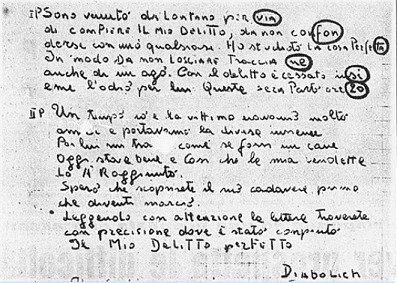 I P Sono venuto da lontano per via
di compiere il mio delitto, da non confon
dersi con uno qualsiasi. Ho studiato la cosa perfetta
In modo da non lasciare traccia ne
anche di un ago. Con il delitto è cessato in si
eme l'odio per lui. Questa sera parto ore 20
II P Un tempo io e la vittima eravamo molto
amici e portavamo la divisa insieme
Per lui ma come se fossi un cane
Oggi stava bene e con che la mia vendetta
Lo ha raggiunto.
Spero che scoprirete il mio cadavere prima
che diventi marcio.
Leggendo con attenzione la lettera troverete
con precisione dove è stato compiuto
Il Mio Delitto perfetto
Diabolich